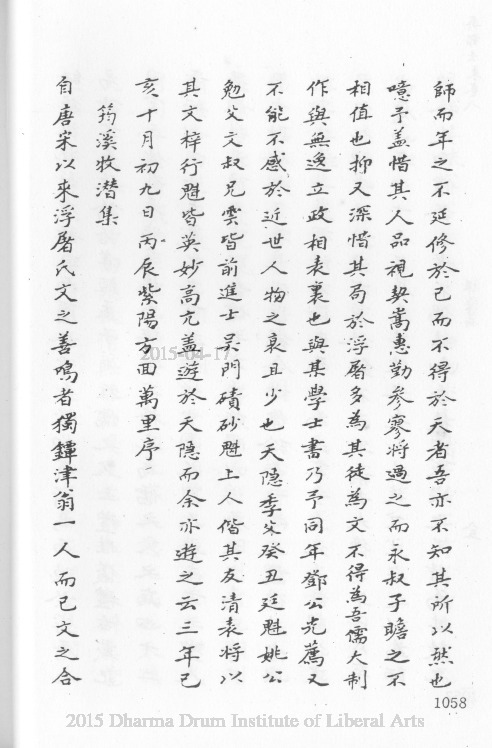 師而年之不延修於己而不得於天者吾亦不知其所以然也
噫予盖惜其人品視契嵩惠勤參寥將過之而永叔子瞻之不
相值也抑又深惜其局於浮屠多為其徒為文不得為吾儒大制
作與無逸立政相表裏也與某學士書乃予同年鄧公光薦又
不能不感於近世人物之衰且少也天隱季宋癸丑廷魁姚公
勉父文叔兄雲皆前進士吴門磧砂魁上人偕其友清表將以
其文梓行魁皆英妙高亢盖遊於天隱而余亦遊之云三年己
亥十月初九日丙辰紫陽方囬萬里序
筠溪牧潛集
自唐宋以來浮屠氏文之善鳴者獨鐔津翁一人而已文之合
1058
2015-04-17
2015 Dharma Drum Institute of Liberal Arts